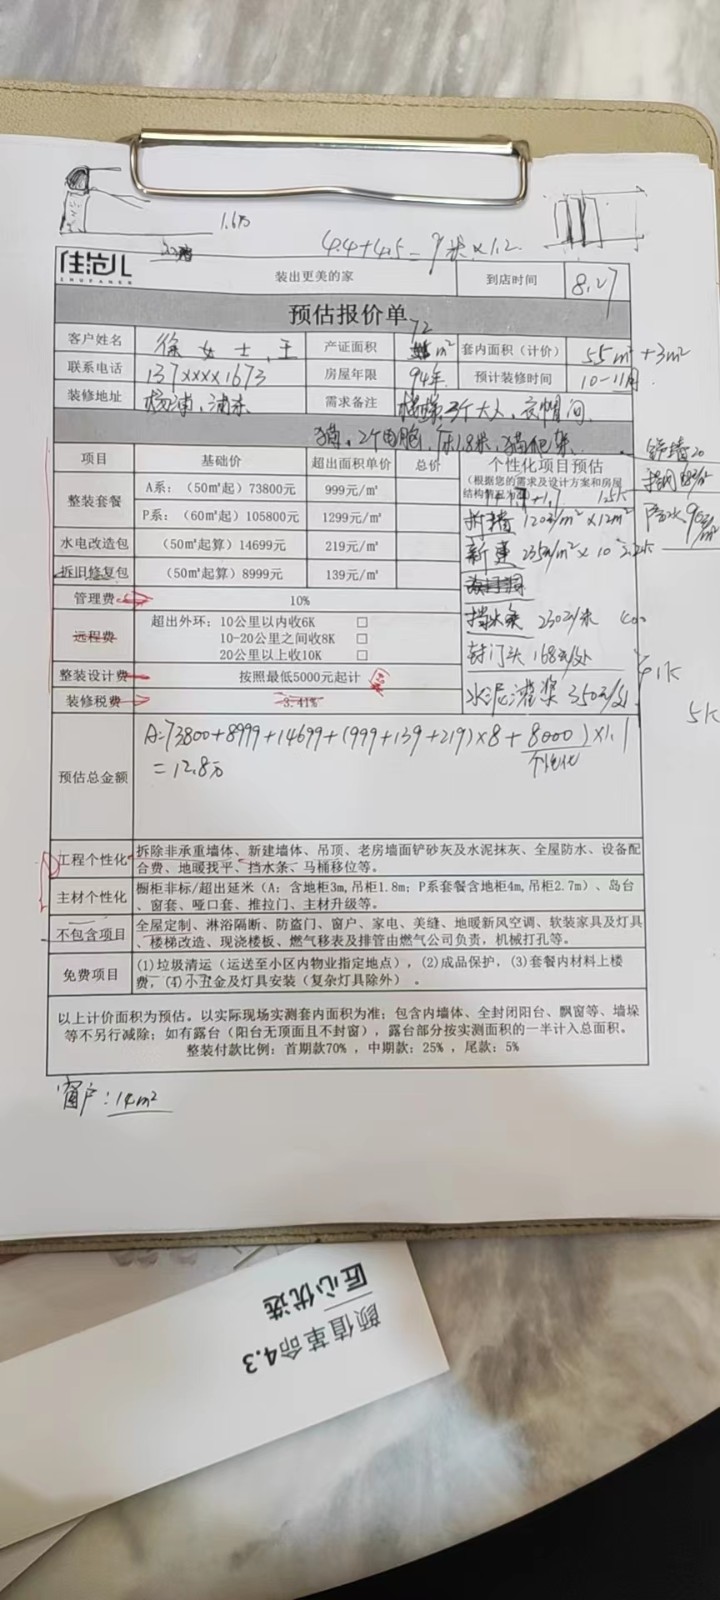 1.6万
4.4+4.5=9米×1.2
住范儿
装出更美的家
到店时间
8.27
预估报价单
客户姓名
徐女士,王
产证面积
72
m²
套内面积(计价)
55m²+3m²
联系电话
137xxxx1673
房屋年限
94年
预计装修时间
10-11月
装修地址
杨浦,浦东
需求备注
3个大人,衣帽间
猫,2个电脑,床1.8米,猫爬架
项目
基础价
超出面积单价
总价
个性化项目预估
(根据您的需求及设计方案和房屋
结构情况为
+1.7
1.5K
整装套餐
A系:(50㎡起)73800元
999元/㎡
P系:(60㎡起)105800元
1299元/㎡
拆墙 120元/m²×12m²
铲墙20
9元/m²
水电改造包
(50㎡起算)14699元
219元/㎡
新建 235元/m²×10 2.2K
拆旧修复包
(50㎡起算)8999元
139元/㎡
管理费
10%
挡水条 230元/米
远程费
超出外环:10公里以内收6K □
10-20公里之间收8K □
20公里以上收10K □
封门头 168元/处
1K
整装设计费
按照最低5000元起计
水泥灌浆 350元/处
5K
装修税费
3.41%
预估总金额
A=73800+8999+14699+(999+139+219)×8+8000)×1.1
个性化
=12.8万
工程个性化
拆除非承重墙体、新建墙体、吊顶、老房墙面铲砂灰及水泥抹灰、全屋防水、设备配
合费、地暖找平、挡水条、马桶移位等。
主材个性化
橱柜非标/超出延米(A:含地柜3m,吊柜1.8m;P系套餐含地柜4m,吊柜2.7m)、岛台
、窗套、哑口套、推拉门、主材升级等。
不包含项目
全屋定制、淋浴隔断、防盗门、窗户、家电、美缝、地暖新风空调、软装家具及灯具
、楼梯改造、现浇楼板、燃气移表及排管由燃气公司负责,机械打孔等。
免费项目
(1)垃圾清运(运送至小区内物业指定地点),(2)成品保护,(3)套餐内材料上楼
费,(4)小五金及灯具安装(复杂灯具除外)。
以上计价面积为预估。以实际现场实测套内面积为准;包含内墙体、全封闭阳台、飘窗等、墙垛
等不另行减除;如有露台(阳台无顶面且不封窗),露台部分按实测面积的一半计入总面积。
整装付款比例:首期款70%,中期款:25%,尾款:5%
窗户:14m²
匠心优选
颜值革命4.3